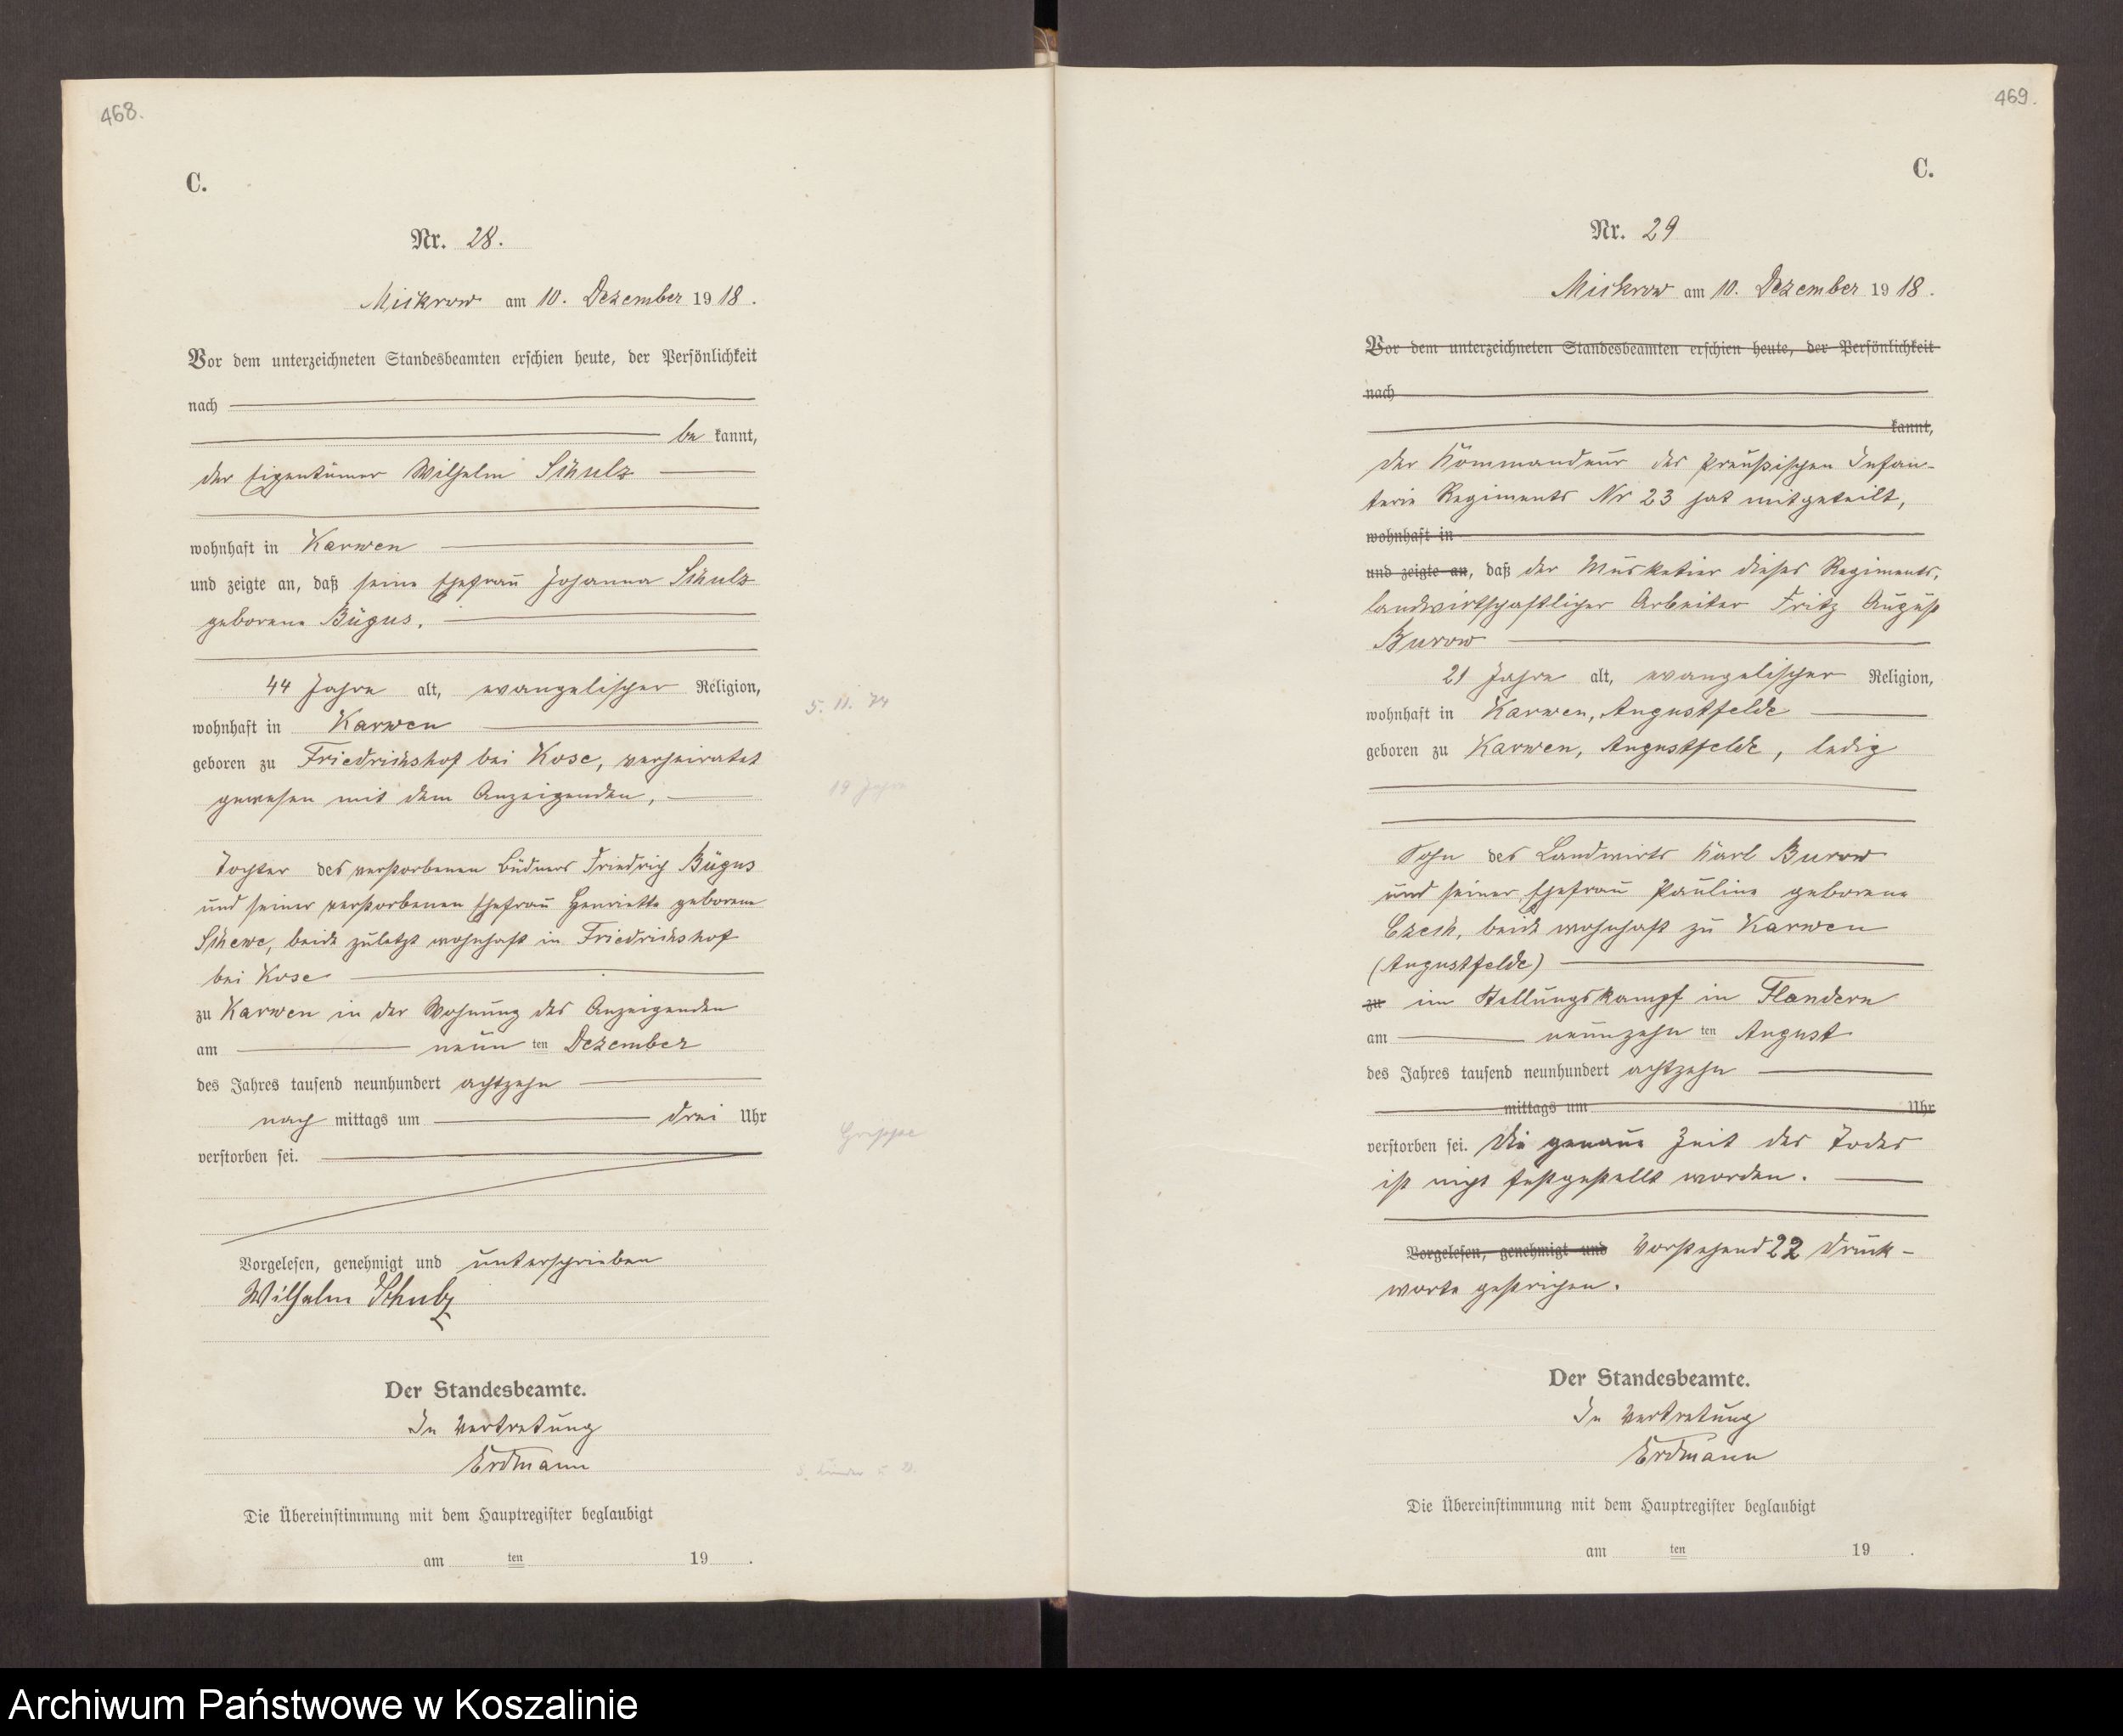 468.
C.
Nr. 28.
Mickrow am 10. Dezember 1918.
Vor dem unterzeichneten Standesbeamten erschien heute, der Persönlichkeit
nach
be kannt,
der Eigentümer Wilhelm Schulz
wohnhaft in Karwen
und zeigte an, daß seine Ehefrau Johanna Schulz
geborene Bügus,
44 Jahre alt, evangelischer Religion,
wohnhaft in Karwen
geboren zu Friedrichshof bei Kose, verheiratet
gewesen mit dem Anzeigenden,
Tochter des verstorbenen Büdners Friedrich Bügus
und seiner verstorbenen Ehefrau Henriette geborene
Schewe, beide zuletzt wohnhaft in Friedrichshof
bei Kose
zu Karwen in der Wohnung des Anzeigenden
am neun ten Dezember
des Jahres tausend neunhundert achtzehn
nach mittags um drei Uhr
verstorben sei.
Vorgelesen, genehmigt und unterschrieben
Wilhelm Schulz
Der Standesbeamte.
In Vertretung
Erdmann
Die Übereinstimmung mit dem Hauptregister beglaubigt
am ten 19 .
5. 11. 74
19 Jahre
Grippe
469.
C.
Nr. 29
Mickrow am 10. Dezember 1918.
Vor dem unterzeichneten Standesbeamten erschien heute, der Persönlichkeit
nach
kannt,
Der Kommandeur des Preußischen Infan-
terie Regiments Nr 23 hat mitgeteilt,
wohnhaft in
und zeigte an, daß der Musketier dieses Regiments,
landwirtschaftlicher Arbeiter Fritz August
Burow
21 Jahre alt, evangelischer Religion,
wohnhaft in Karwen, Augustfelde
geboren zu Karwen, Augustfelde, ledig
Sohn des Landwirts Karl Burow
und seiner Ehefrau Pauline geborene
Czech, beide wohnhaft zu Karwen
(Augustfelde)
zu im Stellungskampf in Flandern
am neunzehn ten August
des Jahres tausend neunhundert achtzehn
mittags um Uhr
verstorben sei. Die genaue Zeit des Todes
ist nicht festgestellt worden.
Vorgelesen, genehmigt und Vorstehend 22 Druck-
worte gestrichen.
Der Standesbeamte.
In Vertretung
Erdmann
Die Übereinstimmung mit dem Hauptregister beglaubigt
am ten 19 .
Archiwum Państwowe w Koszalinie